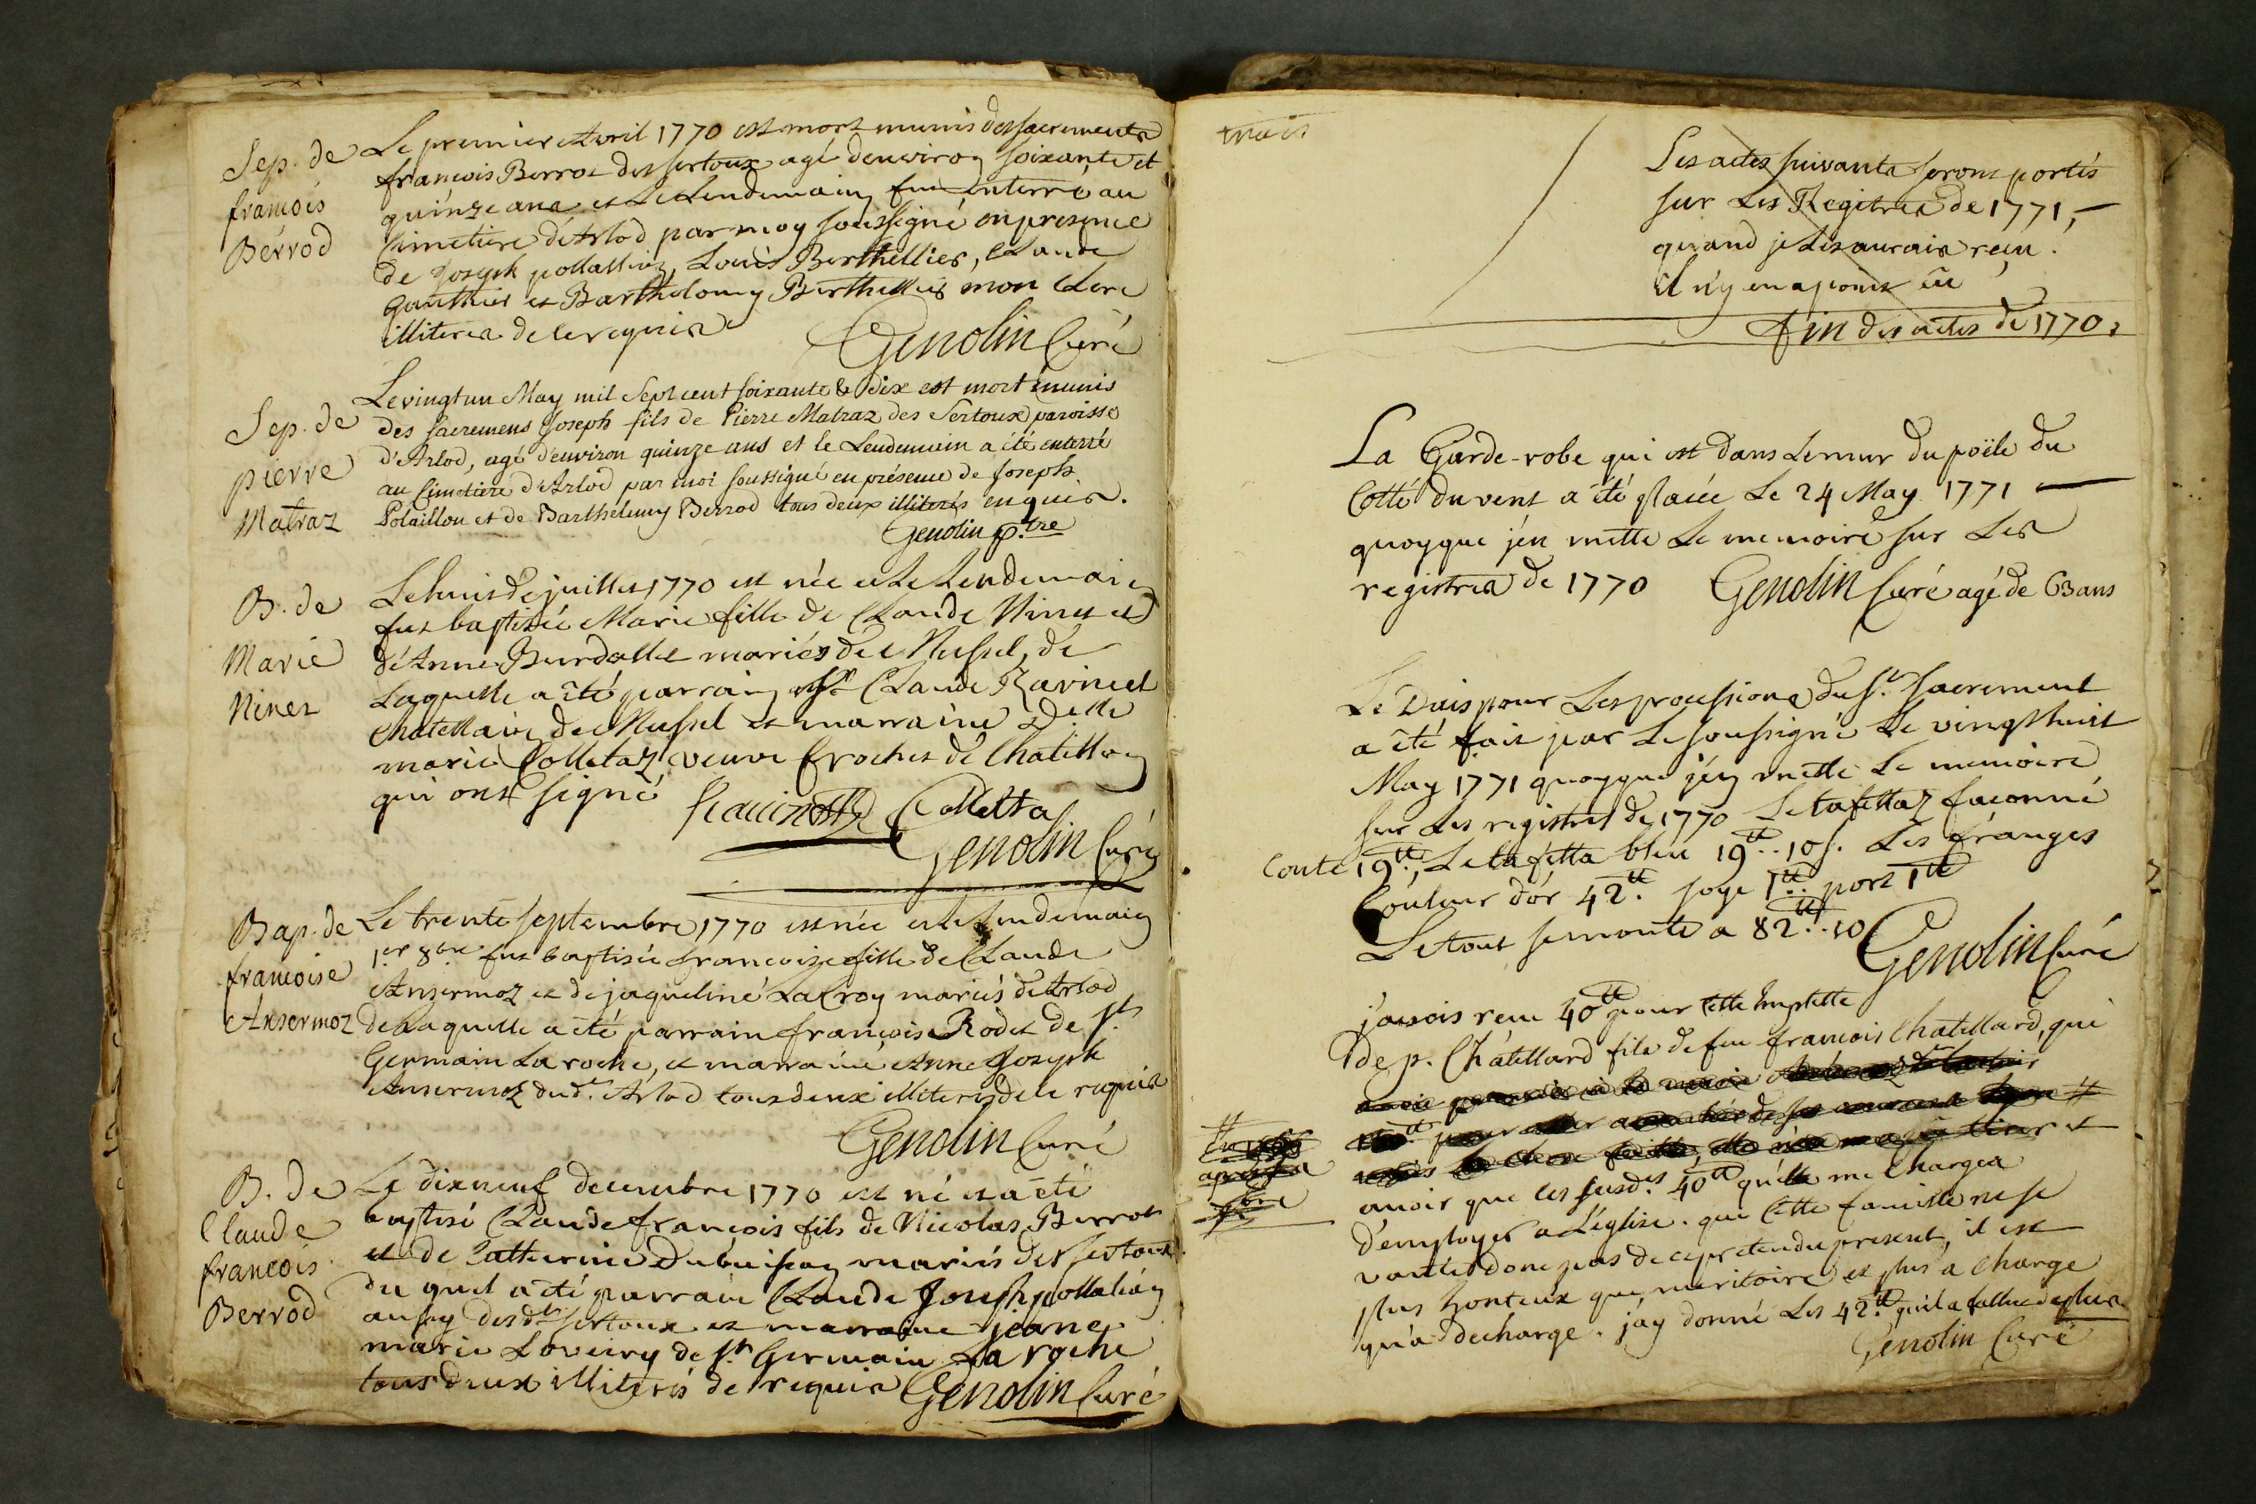 Sep. de
francois
Berrod
Le premier Avril 1770 est mort munis des sacrements
francois Berrot des sertoux agé denviron soixante et
quinze ans et Le Lendemain fut enterré au
Cimetiere d'Arlod par moy soussigné en presence
de Joseph pollallion, Louis Berthellier, Claude
Gauthier et Barthelomy Berthellier mon Clerc
illiteres de ce requis
Genolin Curé
Sep. de
pierre
Matraz
Le vingt un May mil sept cent soixante & dix est mort munis
des sacremens Joseph fils de Pierre Matraz des Sertoux paroisse
d'Arlod, agé d'environ quinze ans et le Lendemain a été enterré
au Cimetiere d'Arlod par moi soussigné en présence de Joseph
Polaillon et de Barthélemy Berrod tous deux illiterés enquis.
Genolin p.tre
B. de
Marie
Ninet
Le huit de juillet 1770 est née et Le Lendemain
fut baptisée Marie fille de Claude Ninet et
d'Anne Burdallet mariés de Mussel, de
Laquelle a été parrain Sr Claude Ravinet
Chatellain de Mussel et marraine Delle
marie Colletaz veuve Crochet de Chatillon
qui ont signé
Ravinet Colletta
Genolin Curé
Bap. de
francoise
Ansermoz
Le trente septembre 1770 est née et Le Lendemain
1.er 8bre fut baptisée francoise fille de Claude
Ansermoz et de jaqueline LaCroy mariés d'Arlod
de Laquelle a été parrain françois Rodet de St
Germain La roche, et marraine Anne Joseph
Ansermoz dud.t Arlod tous deux illiteres de ce requis
Genolin Curé
B. de
Claude
francois
Berrod
Le dixneuf decembre 1770 est né et a été
baptisé Claude francois fils de Nicolas Berrot
et de Catherine Dubuisson mariés des sertoux
du quel a été parrain Claude Joseph pollalion
aussy desdts sertoux et marraine jeane
marie Loveiry de St Germain La roche
tous deux illiterés de ce requis Genolin Curé
Les actes suivants seront portés
sur Les Regitres de 1771,
quand je Les aurais reçu.
il n'y en a point eu
fin des actes de 1770.
La Garde-robe qui est dans Le mur du poële du
Cotté du vent a été placée Le 24 May 1771
quoyque j'en mette Le memoire sur Les
registres de 1770 Genolin Curé agé de 63 ans
Le Dais pour Les processions du St. Sacrement
a été fait par Le soussigné Le vingt huit
May 1771 quoyque j'en mette Le memoire
sur Les registres de 1770 Le tafettaz façonné
Coute 19tt, Le tafetta bleu 19tt..10s. Les franges
Couleur d'or 42tt. soye 1tt. port 1tt
Le tout se monte a 82tt..10
Genolin Curé
j'avois reçu 40tt pour Cette Emplette
de p. Châtellard fils de feu francois Chatellard, qui
avoir que les susdts 40tt qu'elle me Chargea
d'employer a L'église. que Cette famille ne se
vante donc pas de ce pretendu present, il est
plus honteux que meritoire et plus a Charge
qu'a decharge. j'ay donné Les 42tt qu'il a fallu de plus
Genolin Curé